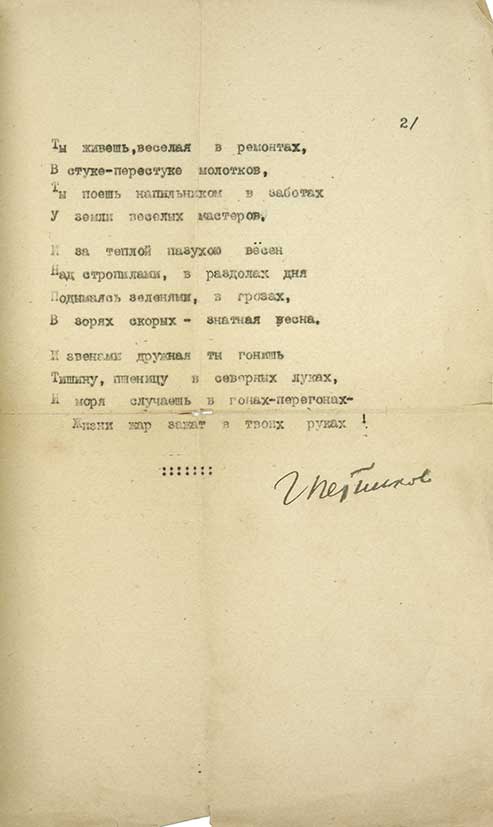 2/
Ты живешь,веселая в ремонтах,
В стуке-перестуке молотков,
Ты поешь напильником в заботах
У земли веселых мастеров.
И за теплой пазухою вёсен
Над стропилами, в раздолах дня
Подымаясь зеленями, в грозах,
В зорях скорых - знатная весна.
И звенами дружная ты гонишь
Тишину, пшеницу в северных луках,
И моря случаешь в гонах-перегонах-
Жизни жар зажат в твоих руках !
:::::::
Г Петников